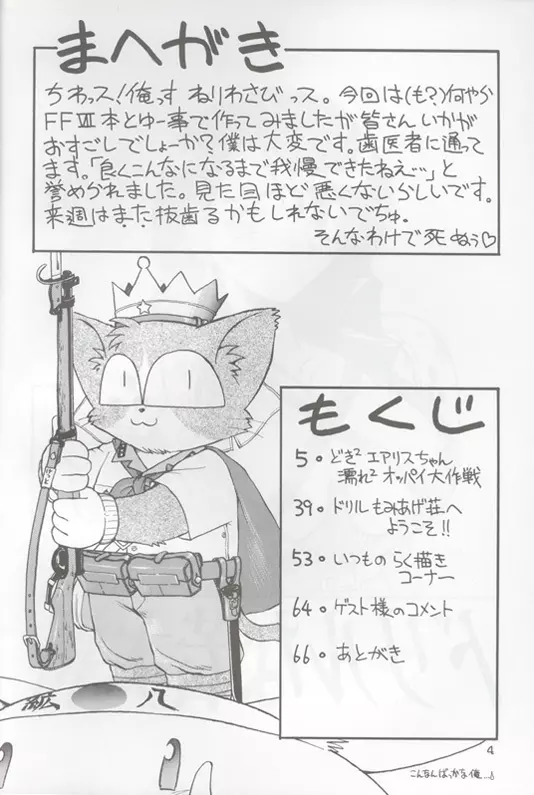 まへがき
ちわっス!俺っす ねりわさびっス。今回は(も?)何やら
FFⅦ本とゆー事で作ってみましたが皆さんいかが
おすごしでしょーか?僕は大変です。歯医者に通って
ます。「良くこんなになるまで我慢できたねえ…」と
誉められました。見た目ほど悪くないらしいです。
来週はまた抜歯るかもしれないでちゅ。
そんなわけで死ぬぅ♡
もくじ
5。どき² エアリスちゃん
濡れ² オッパイ大作戦
39。ドリルもみあげ荘へ
ようこそ!!
53。いつもの らく描き
コーナー
64。ゲスト様のコメント
66。あとがき
八
4
こんなんばっかな俺…♪